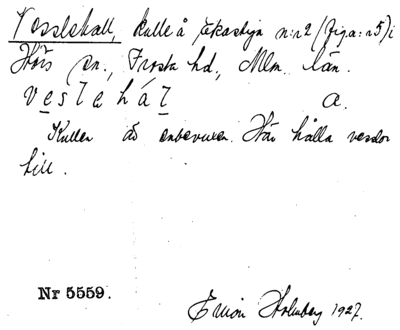 Vesslehall, kulle å Ekastiga n:r 2 (fig. a: r 5) i
Hörs sn., Frosta hd., Mlm. län.
v e s l e h á l a.
Kullen är enbevuxen. Här hålla vesslor
till.
Nr 5559.
Ewion Holmberg 1927.